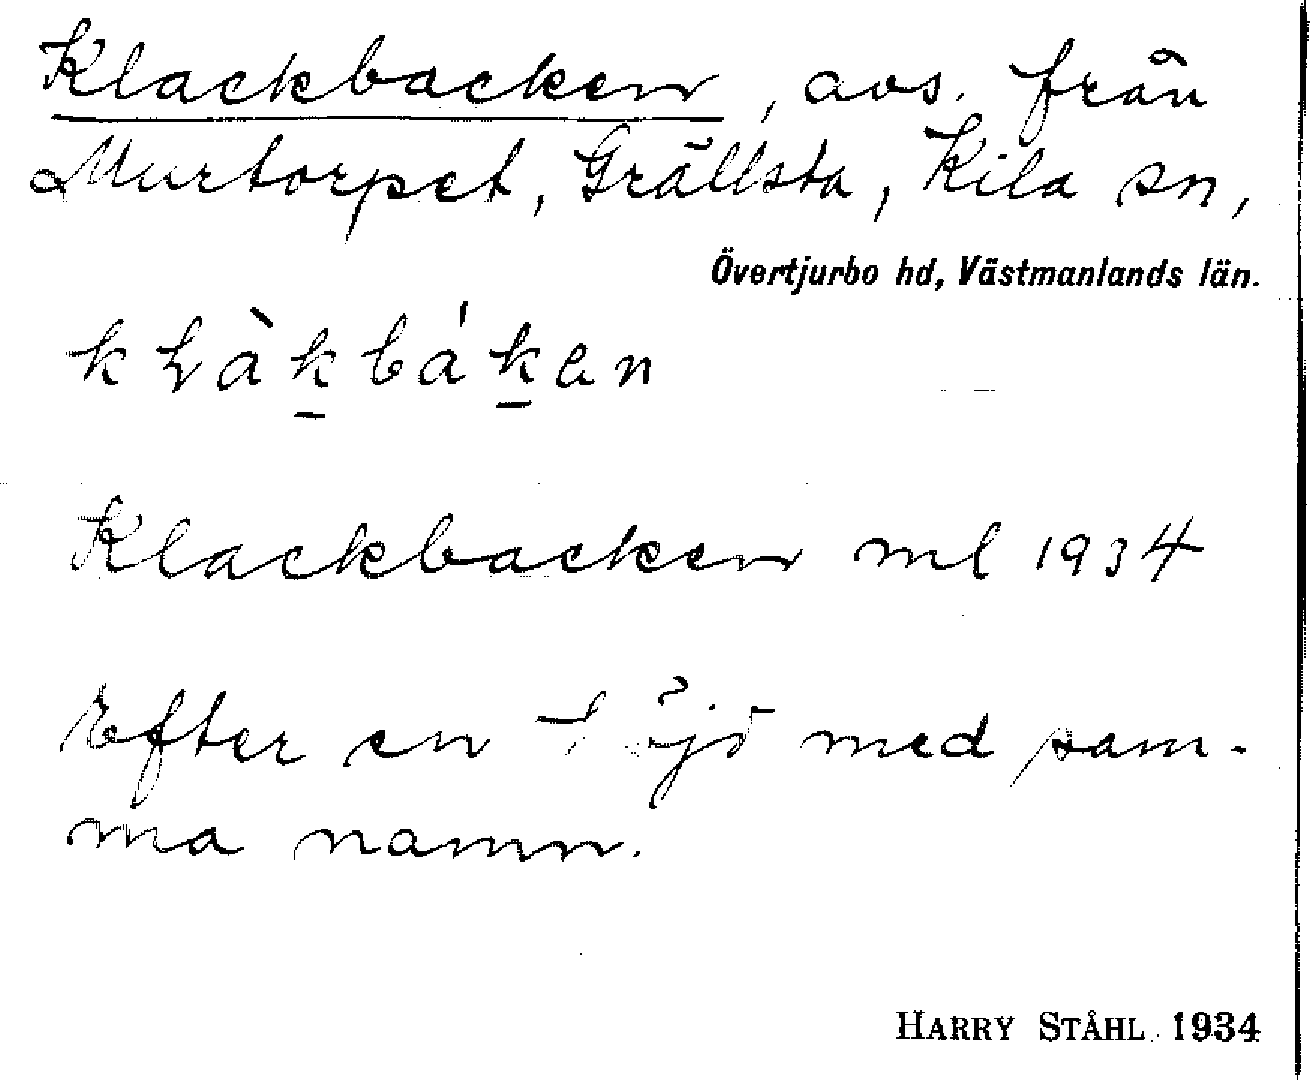 Klackbacken, avs. från
Murtorpet, Grällsta, Kila sn,
Övertjurbo hd, Västmanlands län.
kɫàk̲bák̲en
Klackbacken ml 1934
Efter en höjd med sam-
ma namn.
HARRY STÅHL 1934